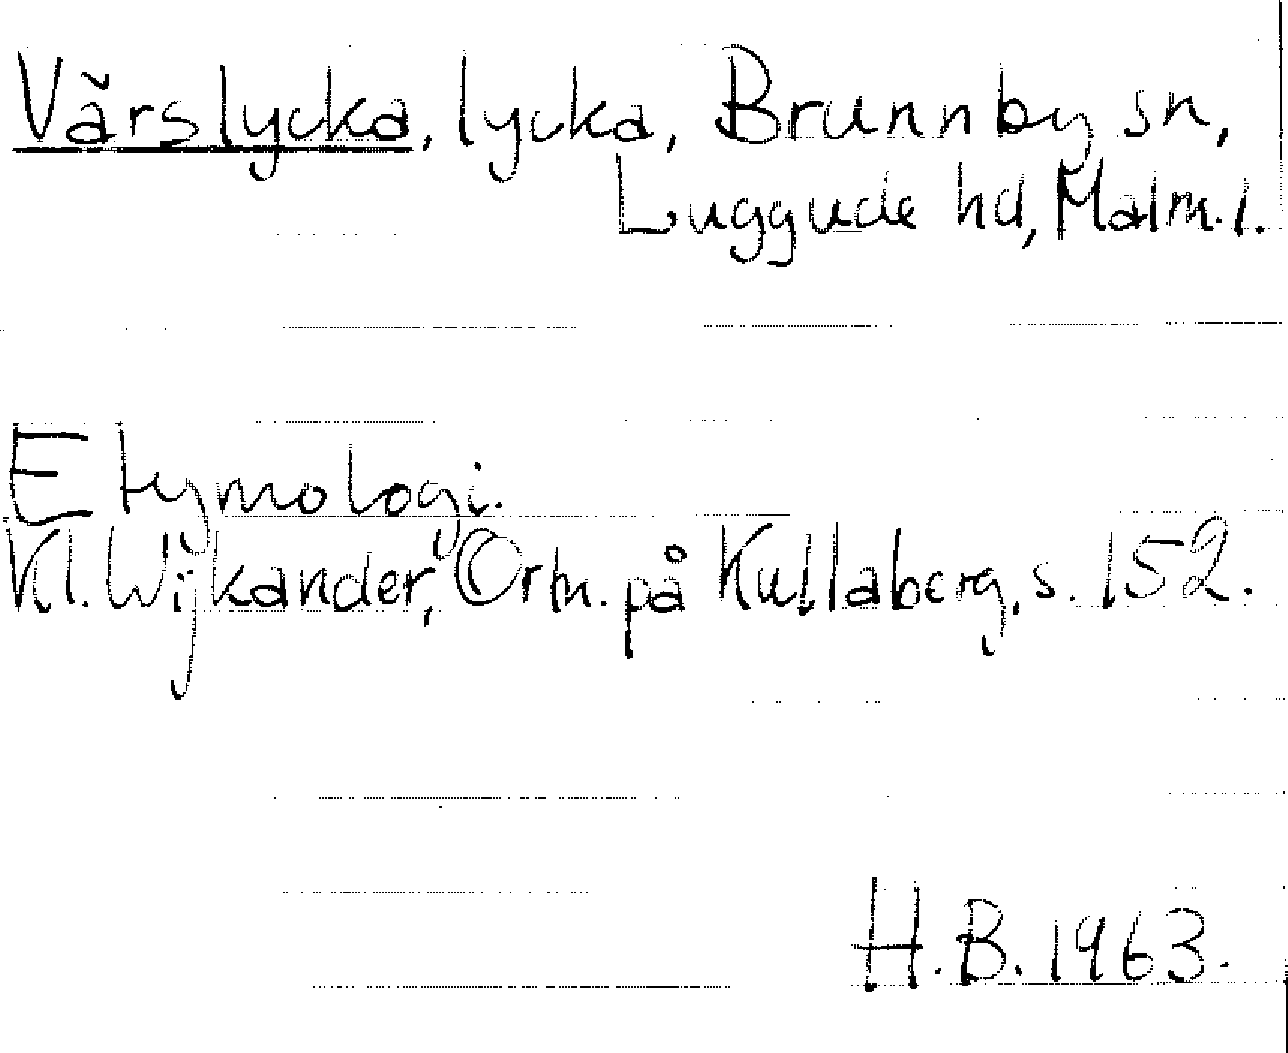 Vårslycka, lycka, Brunnby sn,
Luggude hd, Malm. l.
Etymologi.
Kl. Wijkander, Ortn. på Kullaberg, s. 152.
H.B. 1963.